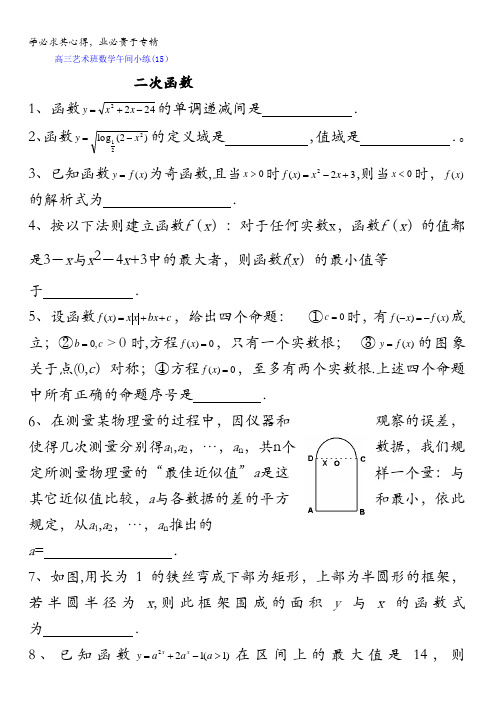 学必求其心得，业必贵于专精
高三艺术班数学午间小练(15)
二次函数
1、函数y=√(x²+2x-24)的单调递减间是 .
2、函数y=√(log_{1/2}(2-x²))的定义域是 ,值域是 .。
3、已知函数y=f(x)为奇函数,且当x>0时f(x)=x²-2x+3,则当x<0时，f(x)
的解析式为 .
4、按以下法则建立函数f（x）：对于任何实数x，函数f（x）的值都
是3－x与x²－4x+3中的最大者，则函数f(x）的最小值等
于 .
5、设函数f(x)=x|x|+bx+c，给出四个命题： ①c=0时，有f(-x)=-f(x)成
立；②b=0,c＞0时,方程f(x)=0，只有一个实数根； ③y=f(x)的图象
关于点(0,c）对称；④方程f(x)=0，至多有两个实数根.上述四个命题
中所有正确的命题序号是 .
6、在测量某物理量的过程中，因仪器和 观察的误差，
使得几次测量分别得a₁,a₂，…，aₙ，共n个 数据，我们规
定所测量物理量的“最佳近似值”a是这 样一个量：与
其它近似值比较，a与各数据的差的平方 和最小，依此
规定，从a₁,a₂，…，aₙ推出的
a= .
D X O C
A B
7、如图,用长为1的铁丝弯成下部为矩形，上部为半圆形的框架，
若半圆半径为x,则此框架围成的面积y与x的函数式
为 .
8、已知函数y=a^{2x}+2a^x-1(a>1)在区间上的最大值是14，则